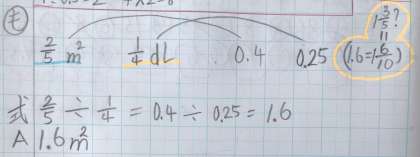 も
2/5 m² 1/4 dL 0.4 0.25 (1.6=1 6/10)
1 3/5?
式 2/5 ÷ 1/4 = 0.4 ÷ 0.25 = 1.6
A 1.6m²